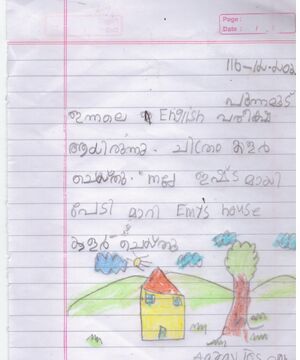 Page :
Date :
പുന്നമൂട്
ഇന്നലെ English പരീക്ഷ
ആയിരുന്നു. ചിത്രം കളർ
ചെയ്തു. നല്ല ഇഷ്ടമായി
പേടി മാറി Emt's house
കളർ ചെയ്തു